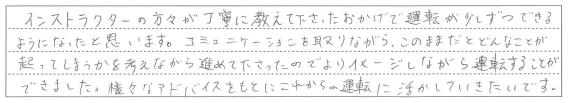 インストラクターの方々が丁寧に教えて下さったおかげで運転が少しずつできる
ようになったと思います。コミュニケーションを取りながら、このままだとどんなことが
起ってしまうかを考えながら進めて下さったのでよりイメージしながら運転することが
できました。様々なアドバイスをもとにこれからの運転に活かしていきたいです。